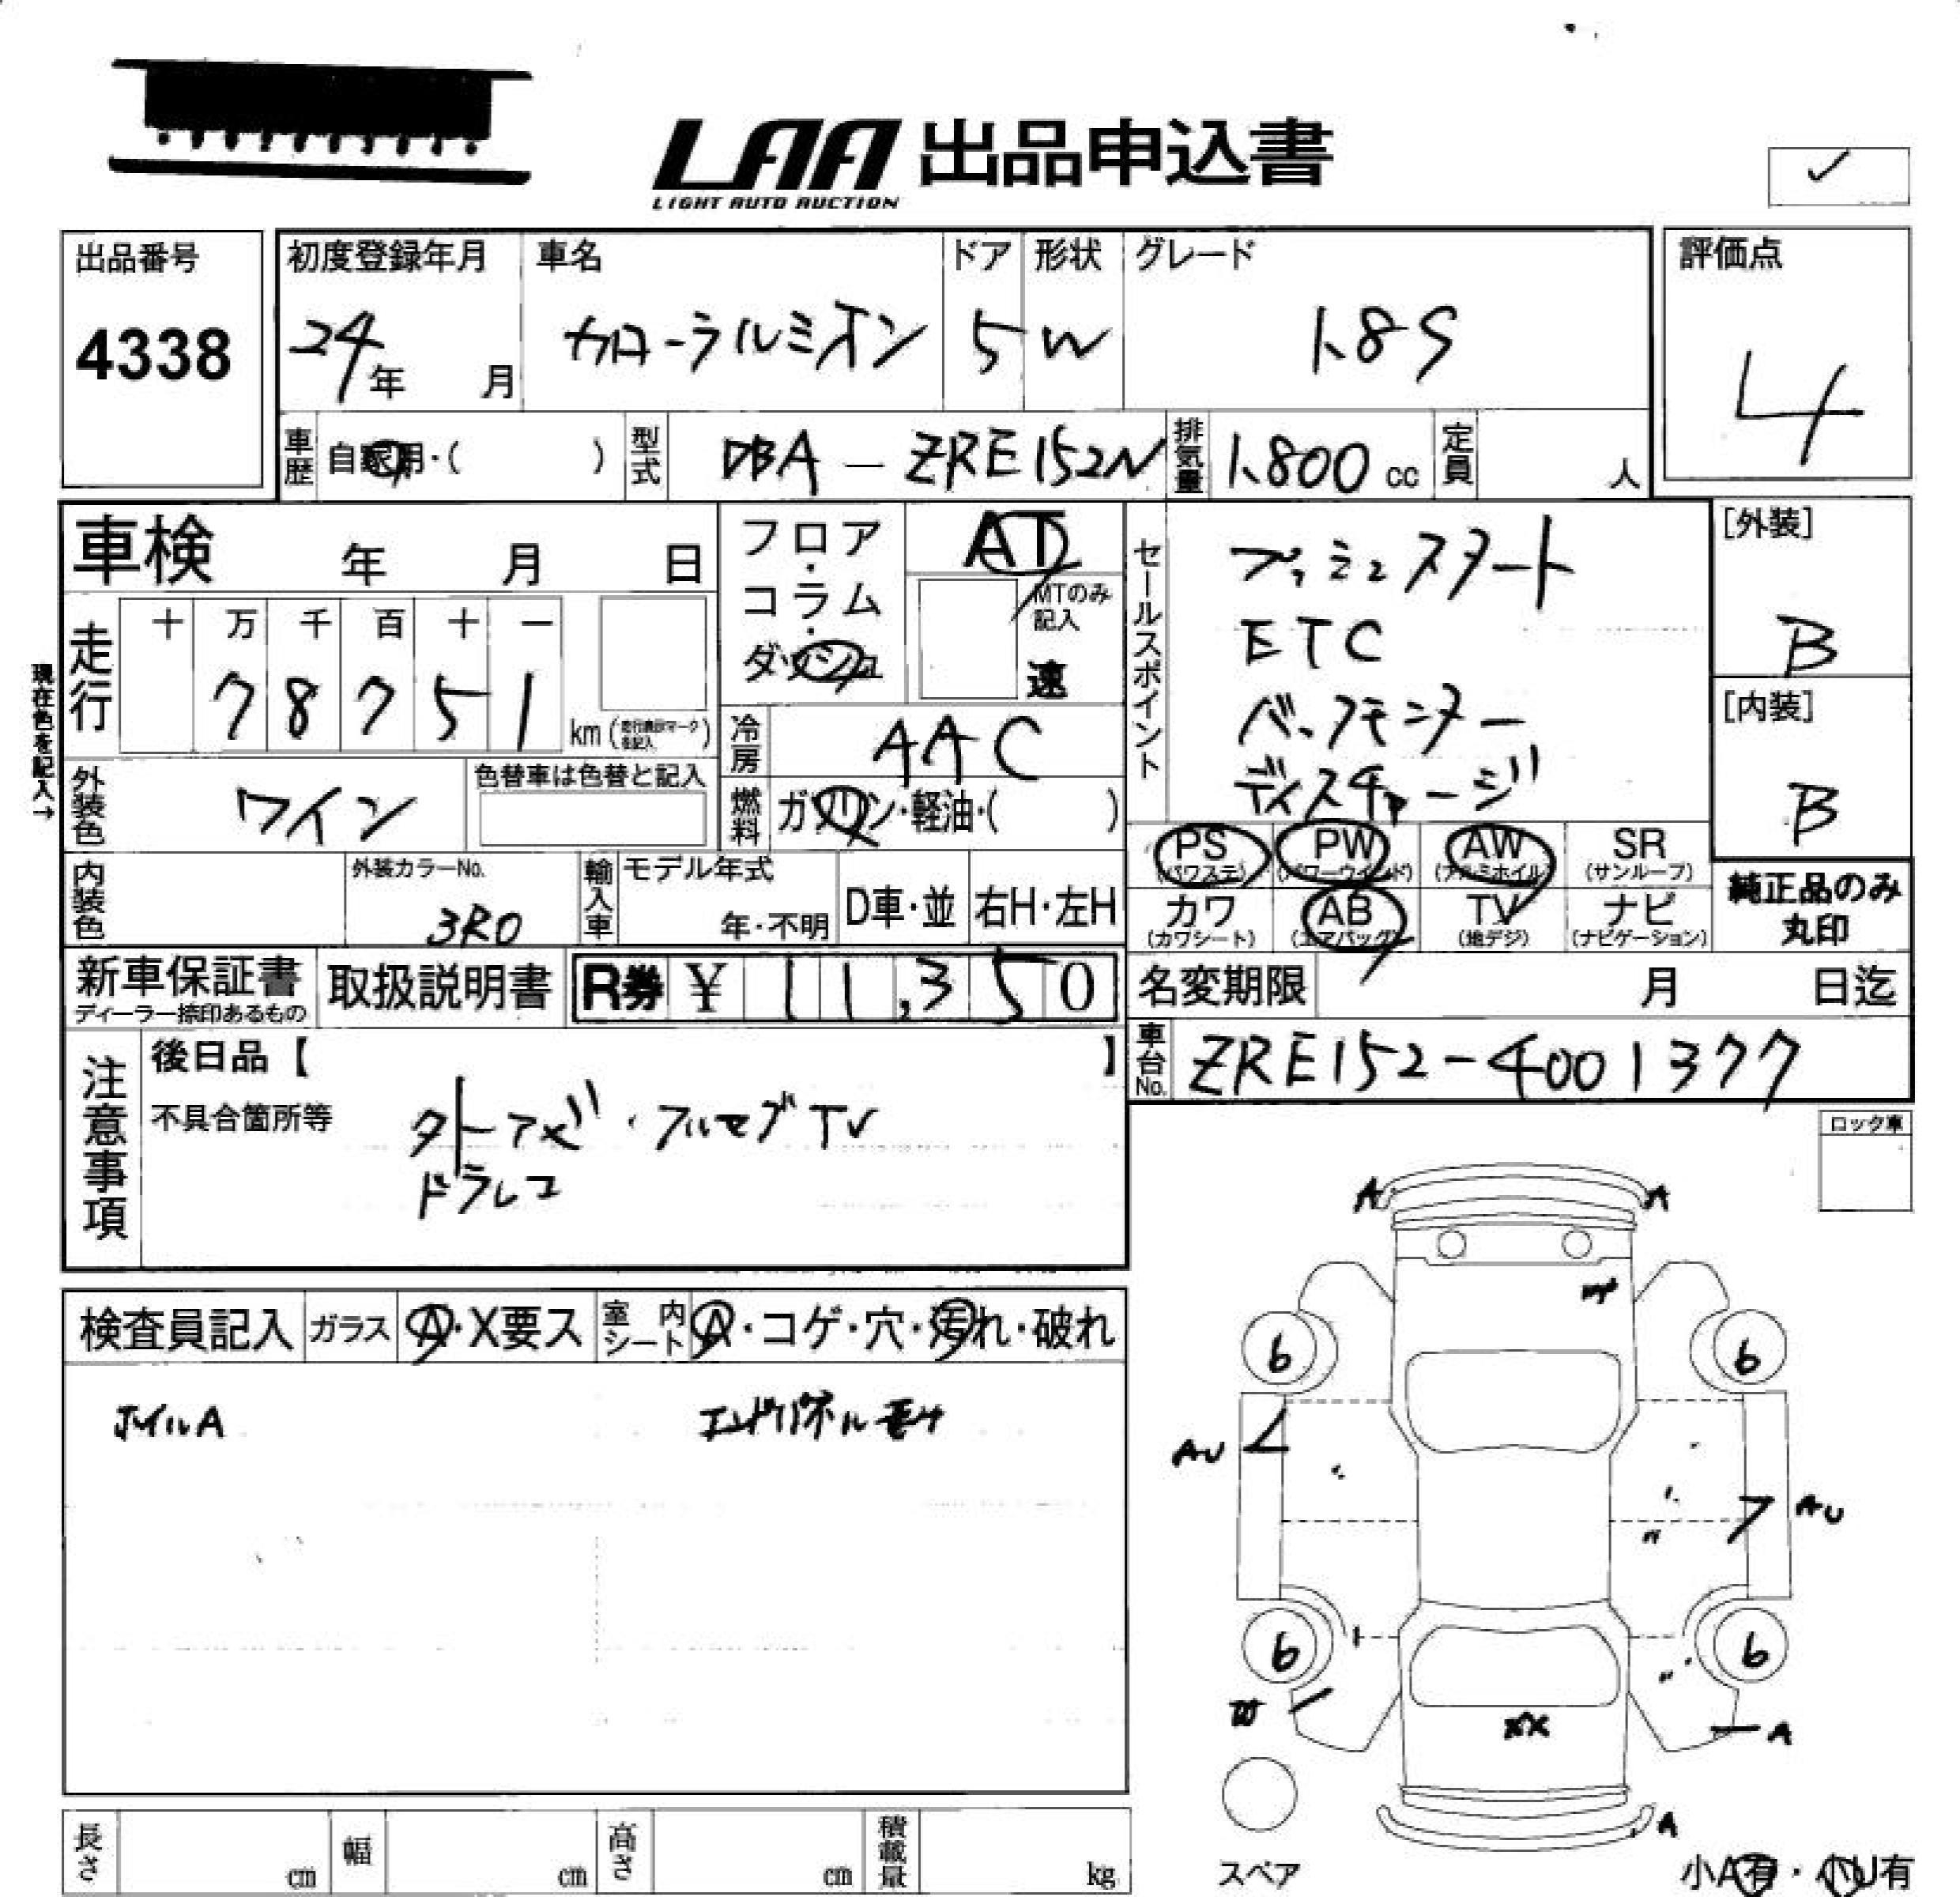 LAA 出品申込書
LIGHT AUTO AUCTION
✓
出品番号
4338
初度登録年月
24年 月
車名
カローラルミオン
ドア
5
形状
W
グレード
1.8S
評価点
4
車歴 自家用・( )
型式 DBA - ZRE152N
排気量 1,800 cc
定員 人
車検 年 月 日
フロア・コラム・ダッシュ
AT
MTのみ記入
速
セールスポイント
プッシュスタート
ETC
バックモニター
ディスチャージ
[外装]
B
[内装]
B
現在色を記入→
走行
十 万 千 百 十 一
7 8 7 5 1
km (走行表示マークを記入)
冷房 AAC
外装色 ワイン
色替車は色替と記入
燃料 ガソリン・軽油・( )
PS (パワステ)
PW (パワーウインド)
AW (アルミホイル)
SR (サンルーフ)
カワ (カワシート)
AB (エアバッグ)
TV (地デジ)
ナビ (ナビゲーション)
純正品のみ
丸印
内装色
外装カラーNo.
3R0
輸入車
モデル年式
年・不明
D車・並
右H・左H
新車保証書
ディーラー捺印あるもの
取扱説明書
R券 ¥ 11,350
名変期限 月 日迄
車台No. ZRE152-4001377
注意事項
後日品【 】
不具合箇所等
フルセグTV
ドラレコ
ロック車
検査員記入
ガラス A・X要ス
室内シート A・コゲ・穴・汚れ・破れ
ホイルA
エンドパネル
A
A
6
6
AU
AU
6
6
W
XX
A
A
スペア
小A有・小U有
長さ cm
幅 cm
高さ cm
積載量 kg